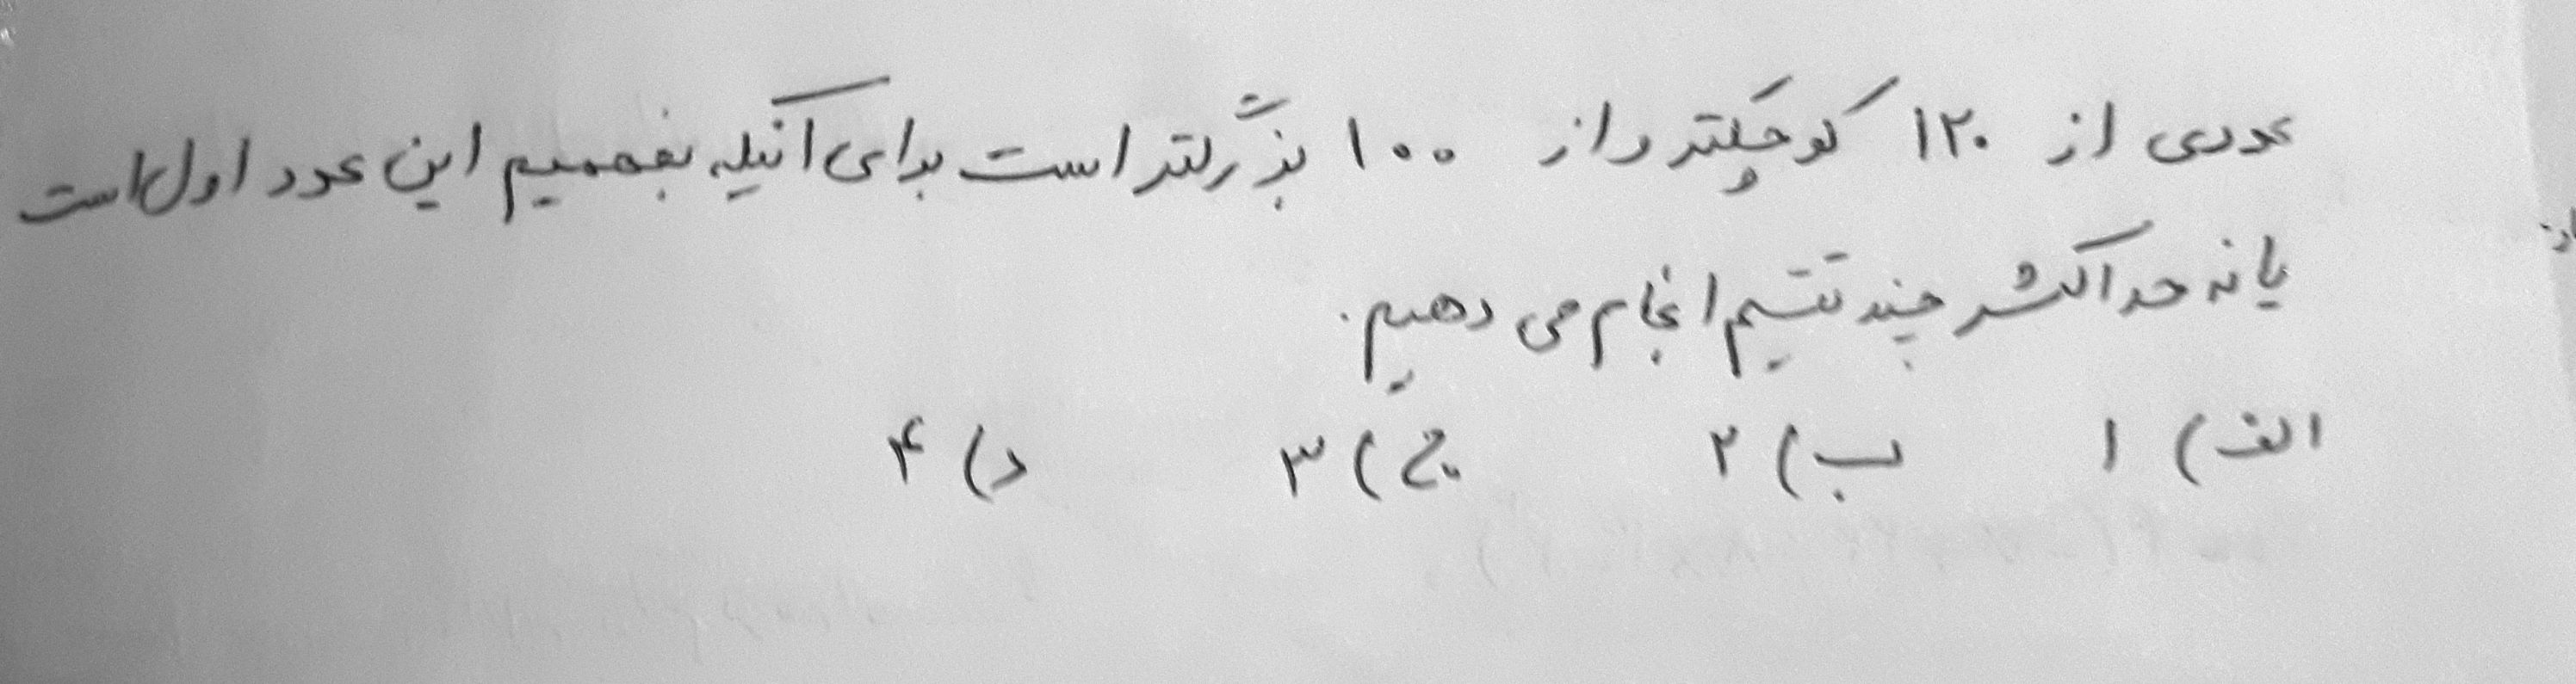 عددی از ۱۲۰ کوچکتر و از ۱۰۰ بزرگتر است برای آنکه بفهمیم این عدد اول است
یا نه حداکثر چند تقسیم انجام می دهیم.
الف) ۱ ب) ۲ ج) ۳ د) ۴